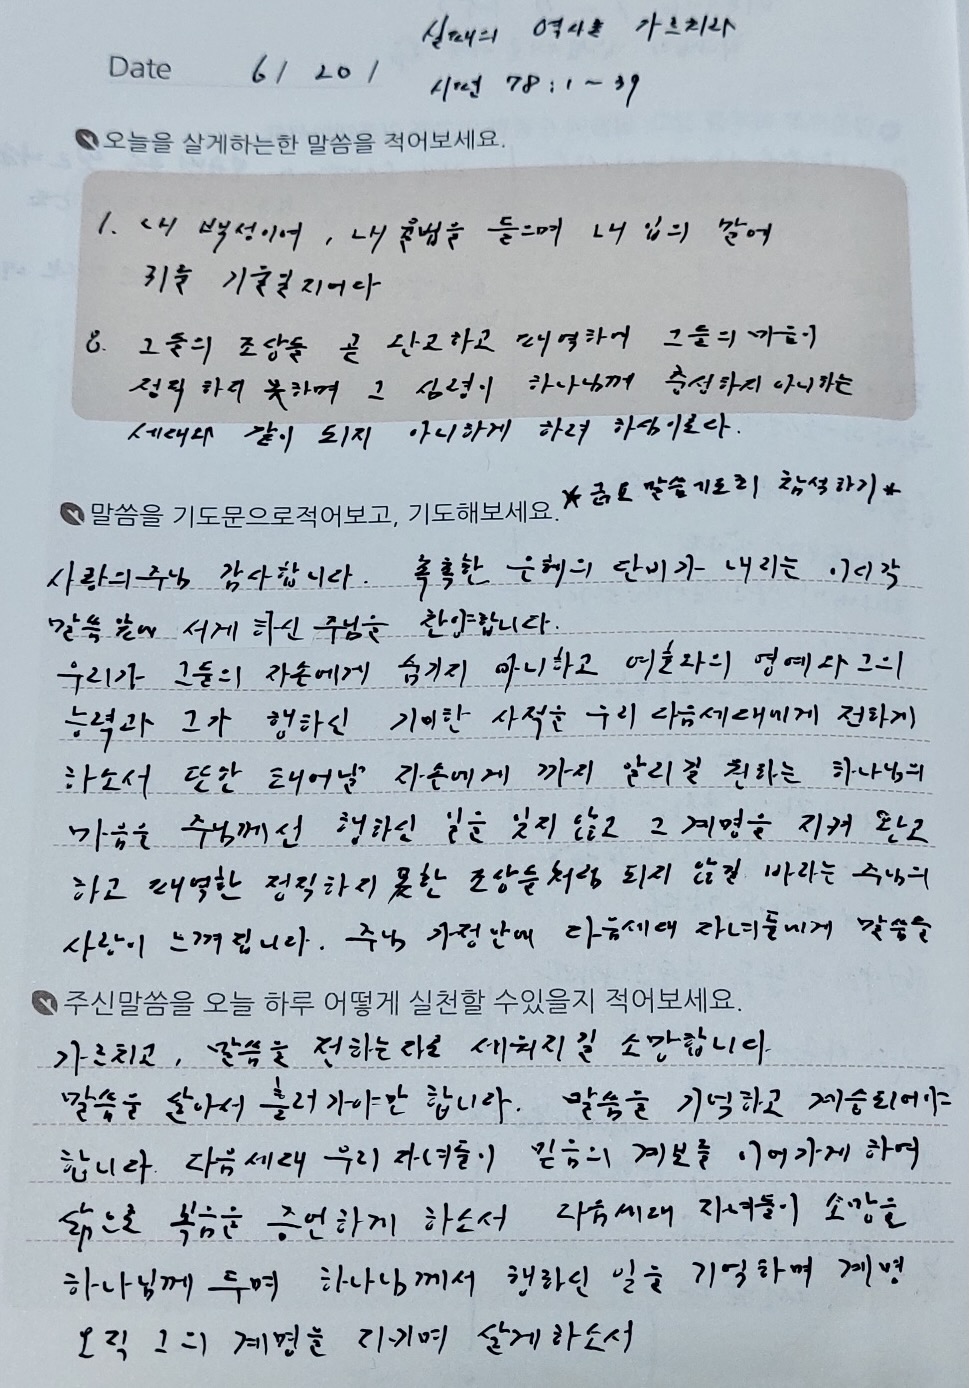 실패의 역사를 가르치라
Date 6/ 20/
시편 78:1~39
오늘을 살게하는한 말씀을 적어보세요.
1. 내 백성이여, 내 율법을 들으며 내 입의 말에
귀를 기울일지어다
8. 그들의 조상들 곧 완고하고 패역하여 그들의 마음이
정직하지 못하며 그 심령이 하나님께 충성하지 아니하는
세대와 같이 되지 아니하게 하려 하심이로다.
*금요 말씀기도회 참석하기*
말씀을 기도문으로적어보고, 기도해보세요.
사랑의주님 감사합니다. 촉촉한 은혜의 단비가 내리는 이시각
말씀 앞에 서게 하신 주님을 찬양합니다.
우리가 그들의 자손에게 숨기지 아니하고 여호와의 영예와 그의
능력과 그가 행하신 기이한 사적을 우리 다음세대에게 전하게
하소서 또한 태어날 자손에게 까지 알리길 원하는 하나님의
마음을 주님께선 행하신 일을 잊지 않고 그 계명을 지켜 완고
하고 패역한 정직하지 못한 조상들처럼 되지 않길 바라는 주님의
사랑이 느껴집니다. 주님 가정안에 다음세대 자녀들에게 말씀을
주신말씀을 오늘 하루 어떻게 실천할 수있을지 적어보세요.
가르치고, 말씀을 전하는자로 세워지길 소망합니다.
말씀을 살아서 흘러가야만 합니다. 말씀을 기억하고 계승되어야
합니다. 다음세대 우리 자녀들이 믿음의 계보를 이어가게 하여
삶으로 복음을 증언하게 하소서 다음세대 자녀들이 소망을
하나님께 두며 하나님께서 행하신 일을 기억하며 계명
오직 그의 계명을 지키며 살게하소서